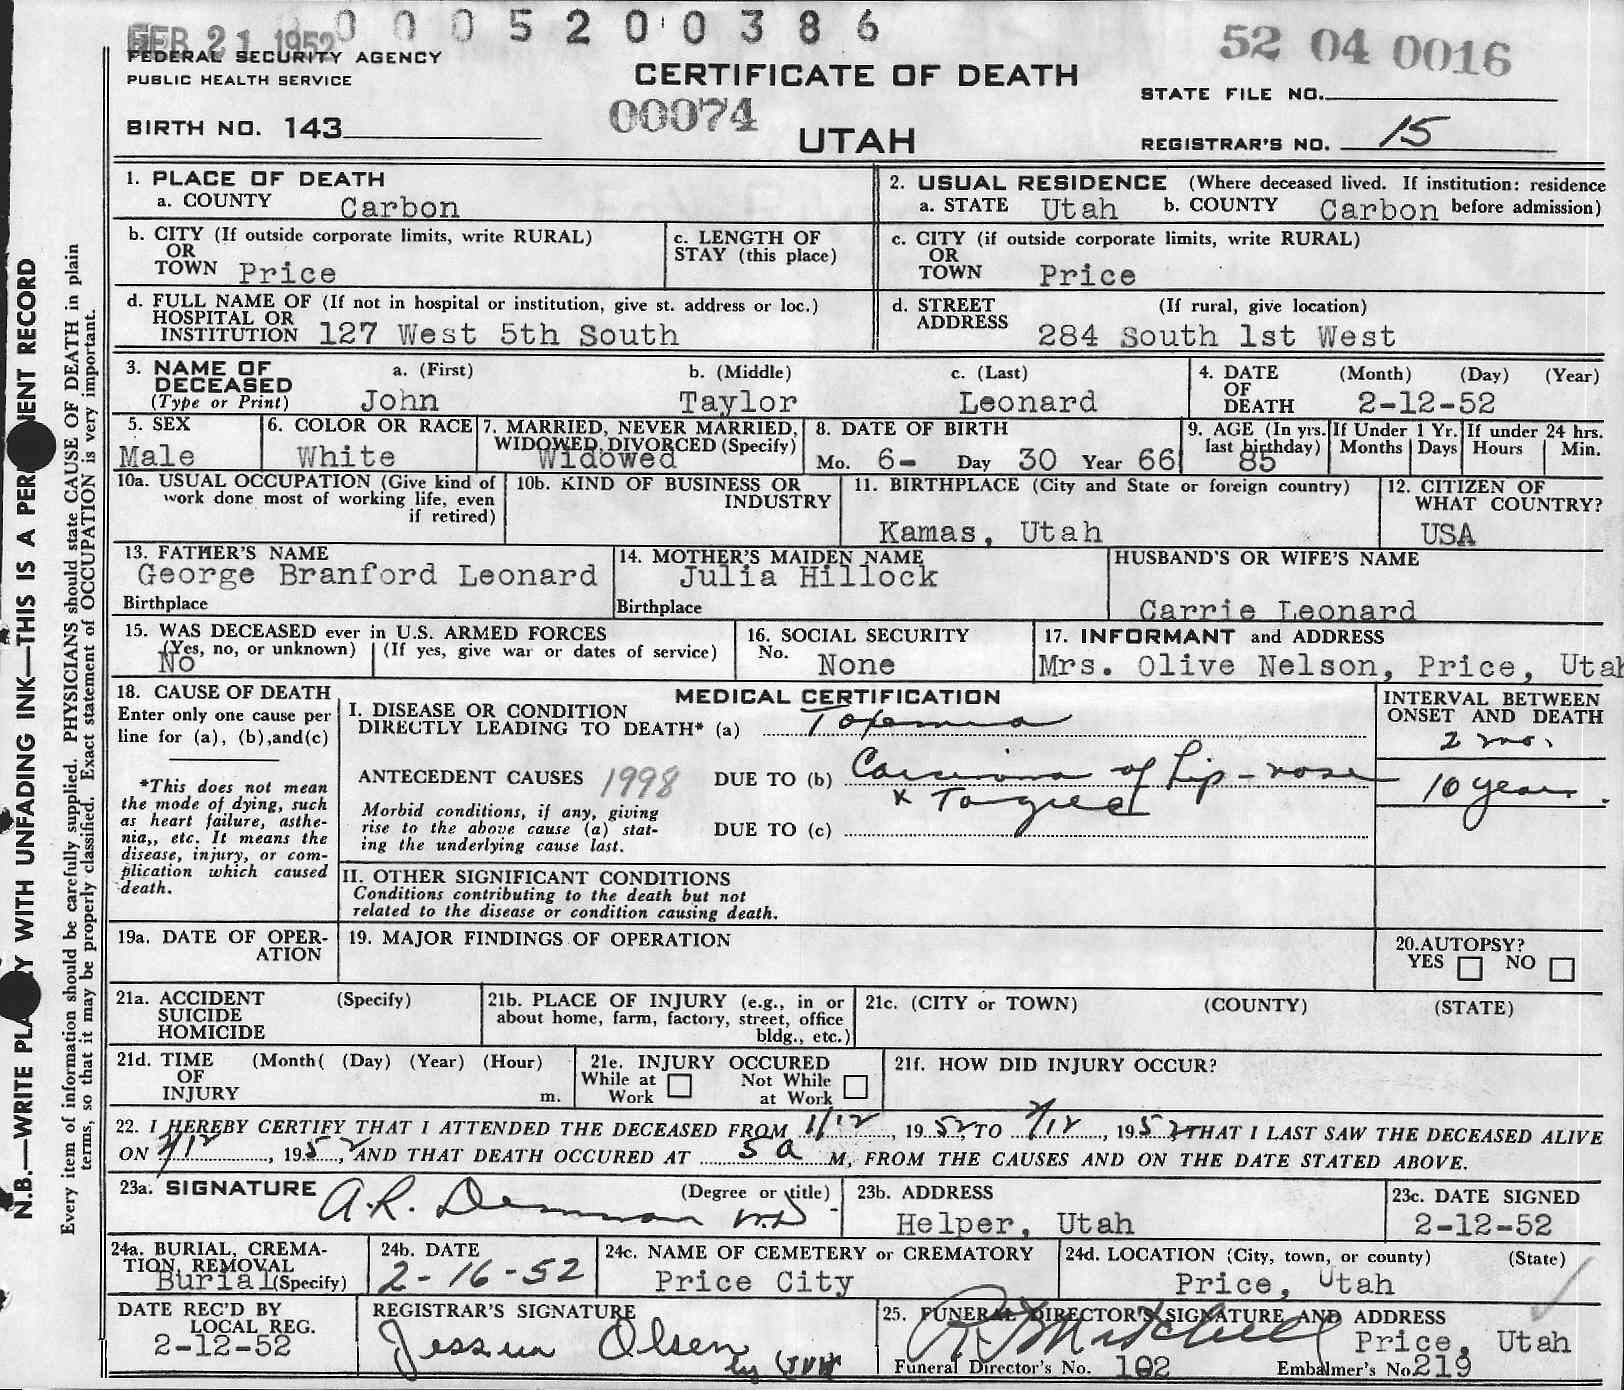 0 0 0 5 2 0 0 3 8 6
FEB 21 1952
52 04 0016
FEDERAL SECURITY AGENCY
PUBLIC HEALTH SERVICE
CERTIFICATE OF DEATH
STATE FILE NO.
00074
BIRTH NO. 143
UTAH
REGISTRAR'S NO. 15
1. PLACE OF DEATH
a. COUNTY Carbon
2. USUAL RESIDENCE (Where deceased lived. If institution: residence
a. STATE Utah b. COUNTY Carbon before admission)
b. CITY (If outside corporate limits, write RURAL)
OR
TOWN Price
c. LENGTH OF
STAY (this place)
c. CITY (if outside corporate limits, write RURAL)
OR
TOWN Price
d. FULL NAME OF (If not in hospital or institution, give st. address or loc.)
HOSPITAL OR
INSTITUTION 127 West 5th South
d. STREET (If rural, give location)
ADDRESS 284 South 1st West
3. NAME OF DECEASED
(Type or Print)
a. (First) b. (Middle) c. (Last)
John Taylor Leonard
4. DATE OF DEATH (Month) (Day) (Year)
2-12-52
5. SEX
Male
6. COLOR OR RACE
White
7. MARRIED, NEVER MARRIED,
WIDOWED, DIVORCED (Specify)
Widowed
8. DATE OF BIRTH
Mo. 6- Day 30 Year 66
9. AGE (In yrs. last birthday)
85
If Under 1 Yr.
Months Days
If under 24 hrs.
Hours Min.
10a. USUAL OCCUPATION (Give kind of
work done most of working life, even
if retired)
10b. KIND OF BUSINESS OR
INDUSTRY
11. BIRTHPLACE (City and State or foreign country)
Kamas, Utah
12. CITIZEN OF
WHAT COUNTRY?
USA
13. FATHER'S NAME
George Branford Leonard
Birthplace
14. MOTHER'S MAIDEN NAME
Julia Hillock
Birthplace
HUSBAND'S OR WIFE'S NAME
Carrie Leonard
15. WAS DECEASED ever in U.S. ARMED FORCES
(Yes, no, or unknown) (If yes, give war or dates of service)
No
16. SOCIAL SECURITY
No. None
17. INFORMANT and ADDRESS
Mrs. Olive Nelson, Price, Utah
18. CAUSE OF DEATH
Enter only one cause per
line for (a), (b),and(c)
*This does not mean
the mode of dying, such
as heart failure, asthe-
nia,, etc. It means the
disease, injury, or com-
plication which caused
death.
MEDICAL CERTIFICATION
I. DISEASE OR CONDITION
DIRECTLY LEADING TO DEATH* (a) Toxemia
ANTECEDENT CAUSES 1998 DUE TO (b) Carcinoma of Lip-nose
x Tongue
Morbid conditions, if any, giving
rise to the above cause (a) stat-
ing the underlying cause last.
DUE TO (c)
INTERVAL BETWEEN
ONSET AND DEATH
2 mo.
10 years.
II. OTHER SIGNIFICANT CONDITIONS
Conditions contributing to the death but not
related to the disease or condition causing death.
19a. DATE OF OPER-
ATION
19. MAJOR FINDINGS OF OPERATION
20.AUTOPSY?
YES NO
21a. ACCIDENT (Specify)
SUICIDE
HOMICIDE
21b. PLACE OF INJURY (e.g., in or
about home, farm, factory, street, office
bldg., etc.)
21c. (CITY or TOWN) (COUNTY) (STATE)
21d. TIME (Month( (Day) (Year) (Hour)
OF
INJURY m.
21e. INJURY OCCURED
While at Work Not While at Work
21f. HOW DID INJURY OCCUR?
22. I HEREBY CERTIFY THAT I ATTENDED THE DECEASED FROM 1/12, 1952, TO 2/12, 1952 THAT I LAST SAW THE DECEASED ALIVE
ON 2/12, 1952, AND THAT DEATH OCCURED AT 5 a M, FROM THE CAUSES AND ON THE DATE STATED ABOVE.
23a. SIGNATURE (Degree or title)
A.R. Demman M.D.
23b. ADDRESS
Helper, Utah
23c. DATE SIGNED
2-12-52
24a. BURIAL, CREMA-
TION, REMOVAL
Burial (Specify)
24b. DATE
2-16-52
24c. NAME OF CEMETERY or CREMATORY
Price City
24d. LOCATION (City, town, or county) (State)
Price, Utah
DATE REC'D BY
LOCAL REG.
2-12-52
REGISTRAR'S SIGNATURE
Olsen
by
25. FUNERAL DIRECTOR'S SIGNATURE AND ADDRESS
Mitchell Price, Utah
Funeral Director's No. 102 Embalmer's No. 219
N.B.—WRITE PLAINLY WITH UNFADING INK—THIS IS A PERMANENT RECORD
Every item of information should be carefully supplied. PHYSICIANS should state CAUSE OF DEATH in plain
terms, so that it may be properly classified. Exact statement of OCCUPATION is very important.